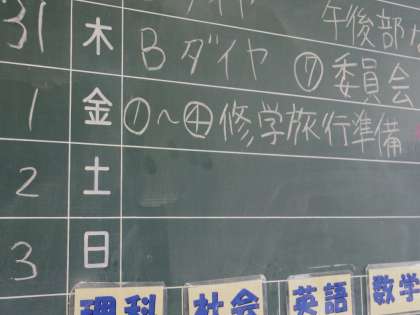 31 木 Bダイヤ ⑦委員会
午後部
1 金 ①~④修学旅行準備
2 土
3 日
理科 社会 英語 数学